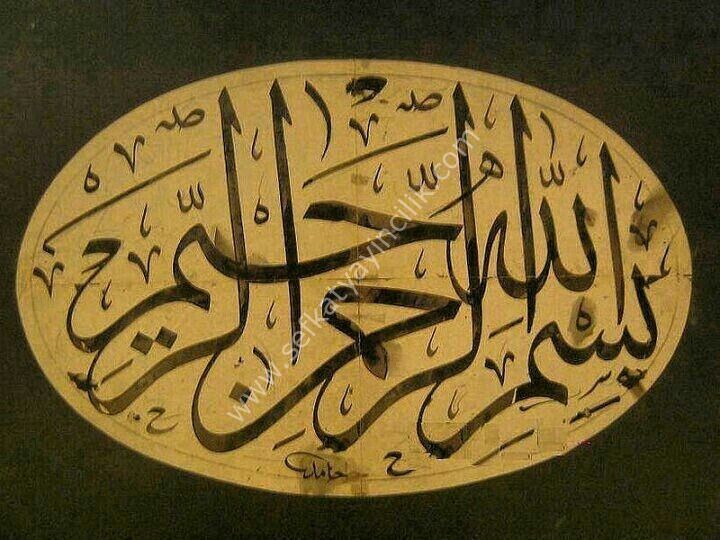 بسم الله الرحمن الرحيم
حامد
www.sefkatyayincilik.com